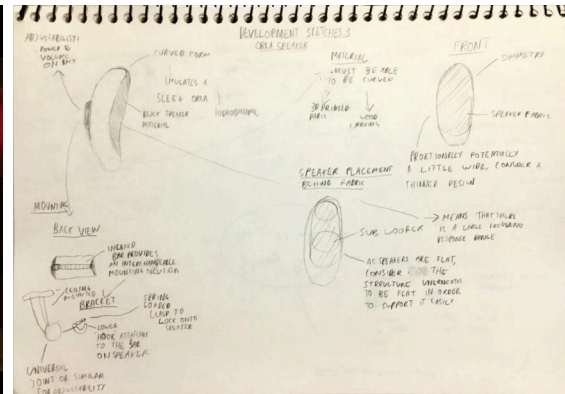 DEVELOPMENT SKETCHES 3
ORCA SPEAKER
ADJUSTABILITY:
- POWER &
VOLUME
ON BACK
CURVED FORM
EMULATES A
SLEEK ORCA
HYDRODYNAMIC
BLACK SPEAKER
MATERIAL
MATERIAL
- MUST BE ABLE
TO BE CURVED
3D PRINTED
PARTS
WOOD
CARVING
FRONT
SYMMETRY
SPEAKER FABRIC
PROPORTIONALLY POTENTIALLY
A LITTLE WIDE, CONSIDER A
THINNER DESIGN
SPEAKER PLACEMENT
BEHIND FABRIC
SUB WOOFER
MEANS THAT THERE
IS A LARGE
RESPONSE RANGE
AS SPEAKERS ARE FLAT,
CONSIDER THE
STRUCTURE UNDERNEATH
TO BE FLAT IN ORDER
TO SUPPORT IT EASILY
MOUNTING
BACK VIEW
BAR PROVIDES
AN INTERCHANGEABLE
MOUNTING SOLUTION
CEILING
MOUNTED
BRACKET
SPRING
LOADED
CLASP TO
LOCK ONTO
SPEAKER
LOWER
HOOK ATTACHES
TO THE BAR
ON SPEAKER
UNIVERSAL
JOINT OR SIMILAR
FOR ADJUSTABILITY